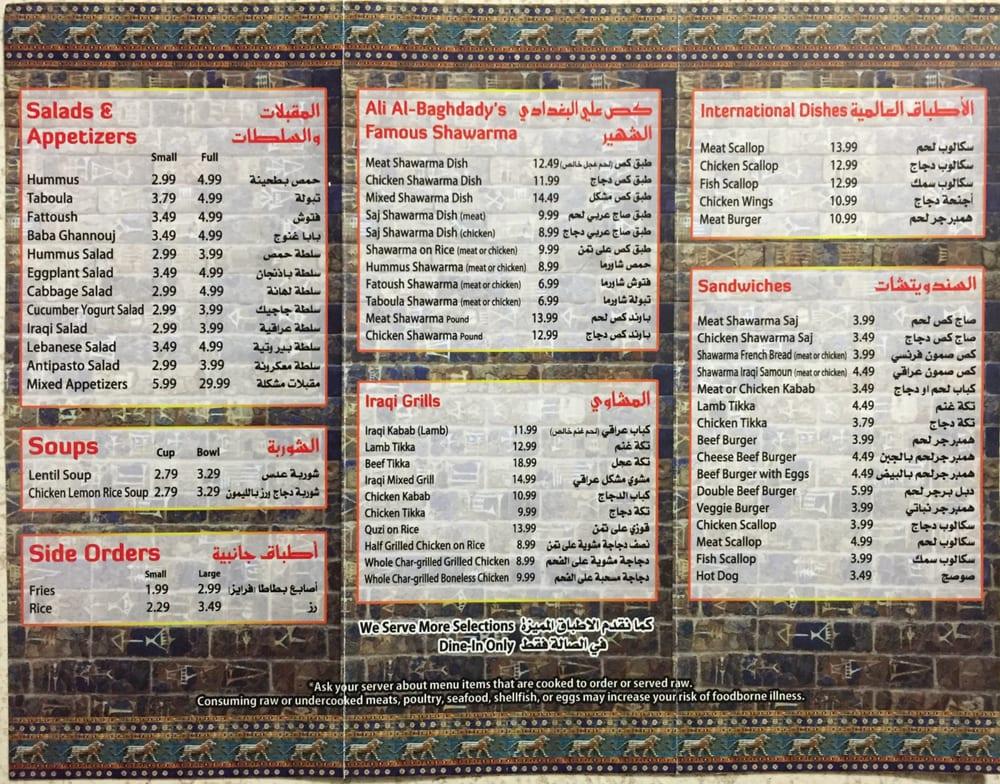 Salads & المقبلات
Appetizers والسلطات
Small Full
Hummus 2.99 4.99 حمص بطحينة
Taboula 3.79 4.99 تبولة
Fattoush 3.49 4.99 فتوش
Baba Ghannouj 3.49 4.99 بابا غنوج
Hummus Salad 2.99 3.99 سلطة حمص
Eggplant Salad 3.49 4.99 سلطة باذنجان
Cabbage Salad 2.99 4.99 سلطة لهانة
Cucumber Yogurt Salad 2.99 3.99 سلطة جاجيك
Iraqi Salad 2.99 3.99 سلطة عراقية
Lebanese Salad 3.49 4.99 سلطة بيروتية
Antipasto Salad 2.99 3.99 سلطة معكرونة
Mixed Appetizers 5.99 29.99 مقبلات مشكلة
Soups Cup Bowl الشوربة
Lentil Soup 2.79 3.29 شوربة عدس
Chicken Lemon Rice Soup 2.79 3.29 شوربة دجاج ورز بالليمون
Side Orders أطباق جانبية
Small Large
Fries 1.99 2.99 أصابع بطاطا افرايز
Rice 2.29 3.49 رز
Ali Al-Baghdady's كص علي البغدادي
Famous Shawarma الشهير
Meat Shawarma Dish 12.49 طبق كص (لحم عجل خالص)
Chicken Shawarma Dish 11.99 طبق كص دجاج
Mixed Shawarma Dish 14.49 طبق كص مشكل
Saj Shawarma Dish (meat) 9.99 طبق صاج عربي لحم
Saj Shawarma Dish (chicken) 8.99 طبق صاج عربي دجاج
Shawarma on Rice (meat or chicken) 9.99 طبق كص على تمن
Hummus Shawarma (meat or chicken) 8.99 حمص شاورما
Fatoush Shawarma (meat or chicken) 6.99 فتوش شاورما
Taboula Shawarma (meat or chicken) 6.99 تبولة شاورما
Meat Shawarma Pound 13.99 باوند كص لحم
Chicken Shawarma Pound 12.99 باوند كص دجاج
Iraqi Grills المشاوي
Iraqi Kabab (Lamb) 11.99 كباب عراقي (لحم غنم خالص)
Lamb Tikka 12.99 تكة غنم
Beef Tikka 18.99 تكة عجل
Iraqi Mixed Grill 14.99 مشوي مشكل عراقي
Chicken Kabab 10.99 كباب الدجاج
Chicken Tikka 9.99 تكة دجاج
Quzi on Rice 13.99 قوزي على تمن
Half Grilled Chicken on Rice 8.99 نصف دجاجة مشوية على تمن
Whole Char-grilled Grilled Chicken 8.99 دجاجة مشوية على الفحم
Whole Char-grilled Boneless Chicken 9.99 دجاجة مسحبة على الفحم
We Serve More Selections كما نقدم الاطباق المميزة
Dine-In Only في الصالة فقط
International Dishes الأطباق العالمية
Meat Scallop 13.99 سكالوب لحم
Chicken Scallop 12.99 سكالوب دجاج
Fish Scallop 12.99 سكالوب سمك
Chicken Wings 10.99 أجنحة دجاج
Meat Burger 10.99 همبرجر لحم
Sandwiches السندويتشات
Meat Shawarma Saj 3.99 صاج كص لحم
Chicken Shawarma Saj 3.49 صاج كص دجاج
Shawarma French Bread (meat or chicken) 3.99 كص صمون فرنسي
Shawarma Iraqi Samoun (meat or chicken) 4.49 كص صمون عراقي
Meat or Chicken Kabab 3.49 كباب لحم او دجاج
Lamb Tikka 4.49 تكة غنم
Chicken Tikka 3.79 تكة دجاج
Beef Burger 3.99 همبرجر لحم
Cheese Beef Burger 4.49 همبرجر لحم بالجبن
Beef Burger with Eggs 4.49 همبرجر لحم بالبيض
Double Beef Burger 5.99 دبل برجر لحم
Veggie Burger 3.99 همبرجر نباتي
Chicken Scallop 3.99 سكالوب دجاج
Meat Scallop 4.99 سكالوب لحم
Fish Scallop 3.99 سكالوب سمك
Hot Dog 3.49 صوصج
*Ask your server about menu items that are cooked to order or served raw.
Consuming raw or undercooked meats, poultry, seafood, shellfish, or eggs may increase your risk of foodborne illness.